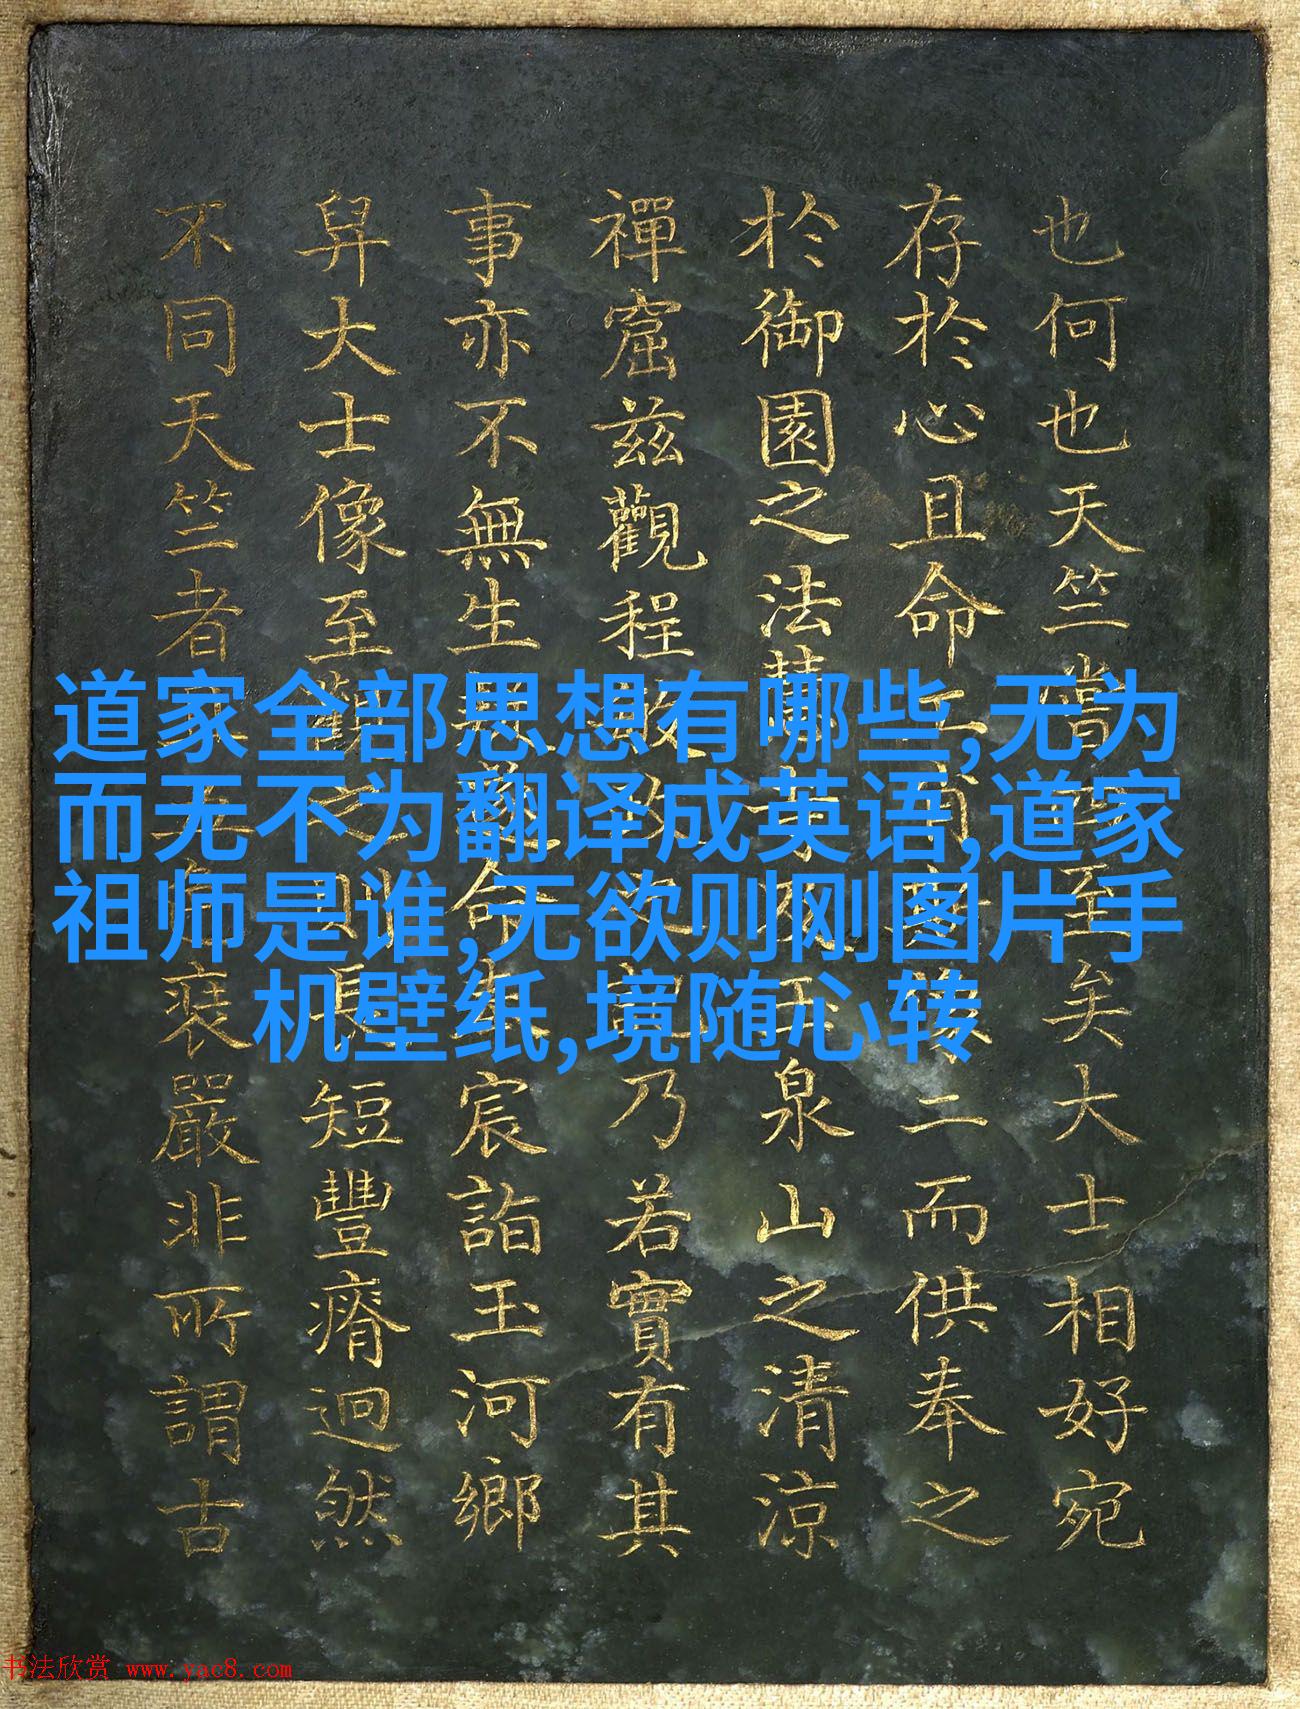 也何也天竺當至矣大士相好宛
存於心且命工像二而供奉之
於御園之法慧寺玉泉山之清涼
禪窟茲觀程敏政記乃若實有其
事亦不無生命宸詣玉河鄉
舁大士像至觀之則長短豐瘠迥然
不同天竺者裝嚴非所謂古
道家全部思想有哪些,无为
而无不为翻译成英语,道家
祖师是谁,无欲则刚图片手
机壁纸,境随心转
书法欣赏 www.yac8.com